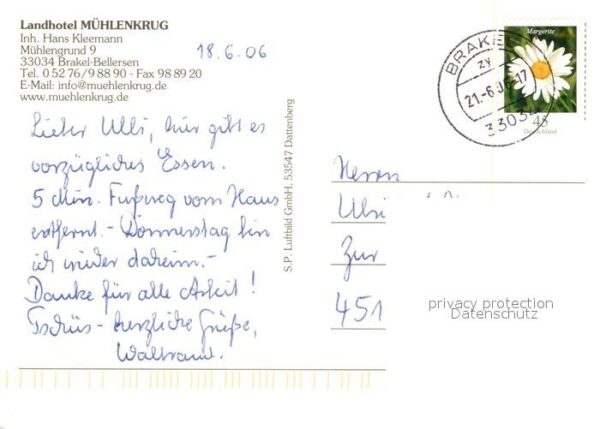 Landhotel MÜHLENKRUG
Inh. Hans Kleemann
Mühlengrund 9
33034 Brakel-Bellersen
Tel. 0 52 76/9 88 90 - Fax 98 89 20
E-Mail: info@muehlenkrug.de
www.muehlenkrug.de
18.6.06
Lieber Ulli, hier gibt es
vorzügliches Essen.
5 Min. Fußweg vom Haus
entfernt.- Donnerstag bin
ich wieder daheim.-
Danke für alle Arbeit!
Tschüs - herzliche Grüße,
Waltraud.
S.P. Luftbild GmbH, 53547 Dattenberg
BRAKEL
zy
21.-6.06-17
33034
Margerite
45
Deutschland
Herrn
Ulri
Zur
451
privacy protection
Datenschutz